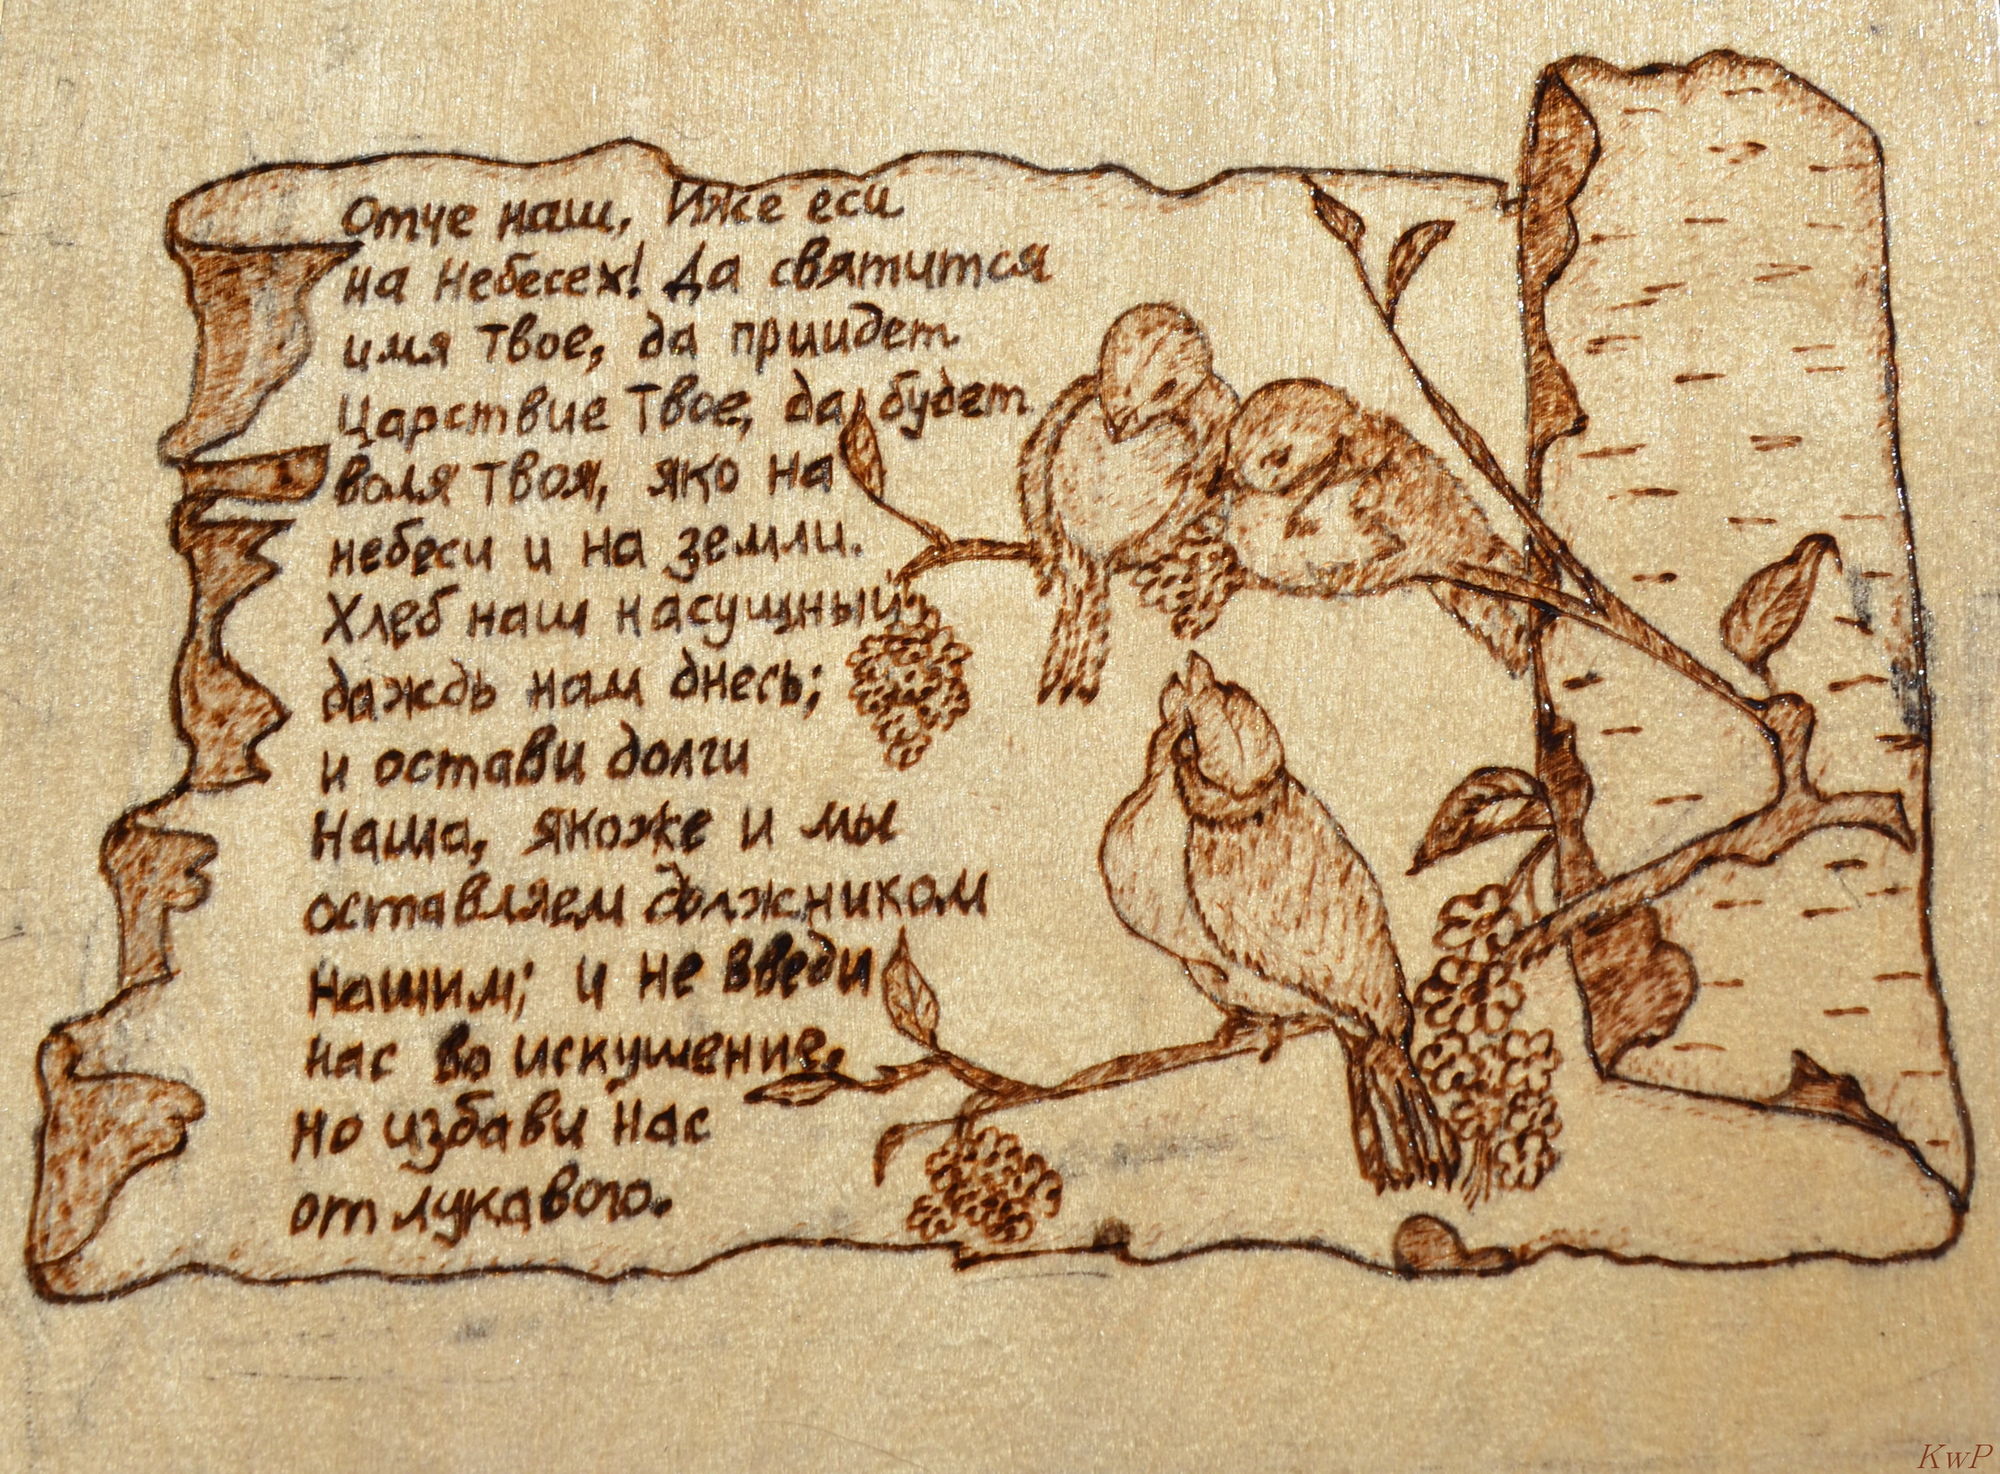 Отче наш, Иже еси
на Небесех! Да святится
имя твое, да приидет
Царствие Твое, да будет
воля твоя, яко на
небеси и на земли.
Хлеб наш насущный
даждь нам днесь;
и остави долги
Наша, якоже и мы
оставляем должником
нашим; и не введи
нас во искушение,
но избави нас
от лукавого.
KwP